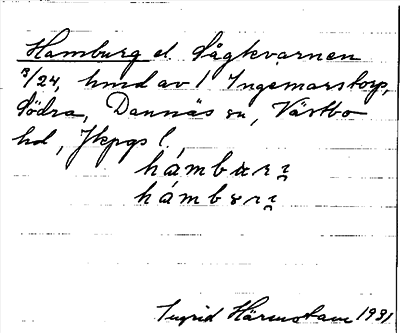 Hamburg el. Sågkvarnen
3/24, hmd av 1 Ingemarstorp,
Södra, Dannäs sn, Västbo
hd, Jkpgs l.
hámbʉrɿ
hámbɤrɿ
Ingrid Härenstam 1931